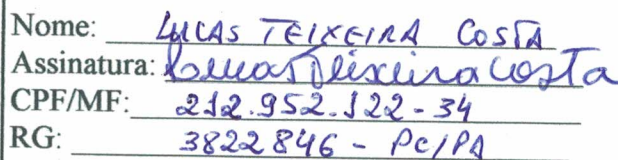 Nome: LUCAS TEIXEIRA COSTA
Assinatura: Lucas Teixeira Costa
CPF/MF: 212.952.122-34
RG: 3822846 - PC/PA